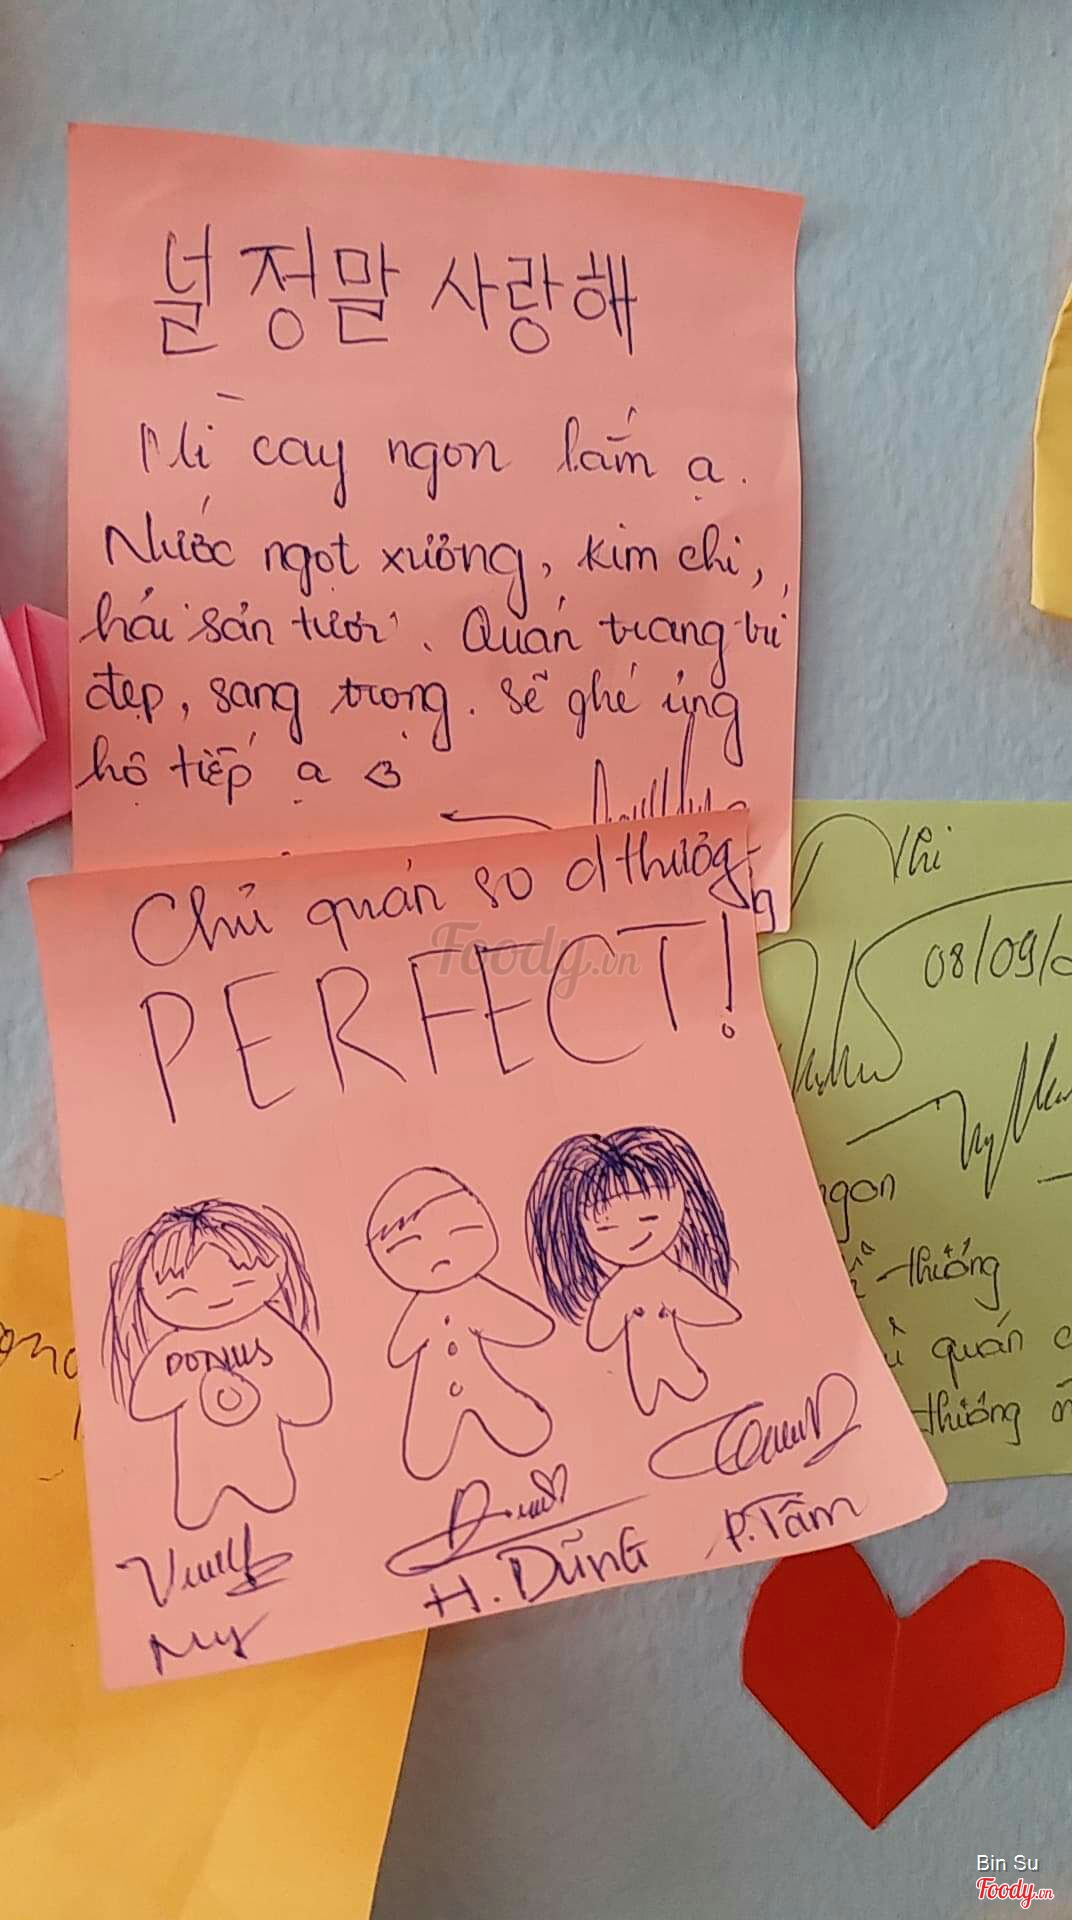 널 정말 사랑해
Mì cay ngon lắm ạ.
Nước ngọt xương, kim chi,
hải sản tươi. Quán trang trí
đẹp, sang trọng. Sẽ ghé ủng
hộ tiếp ạ <3
Chủ quán so dthương
PERFECT!
DONUS
My
H. DŨNG
P.Tâm
Nhi
08/09/2
ngon
thương
quán c
thương
Bin Su
Foody.vn
Foody.vn